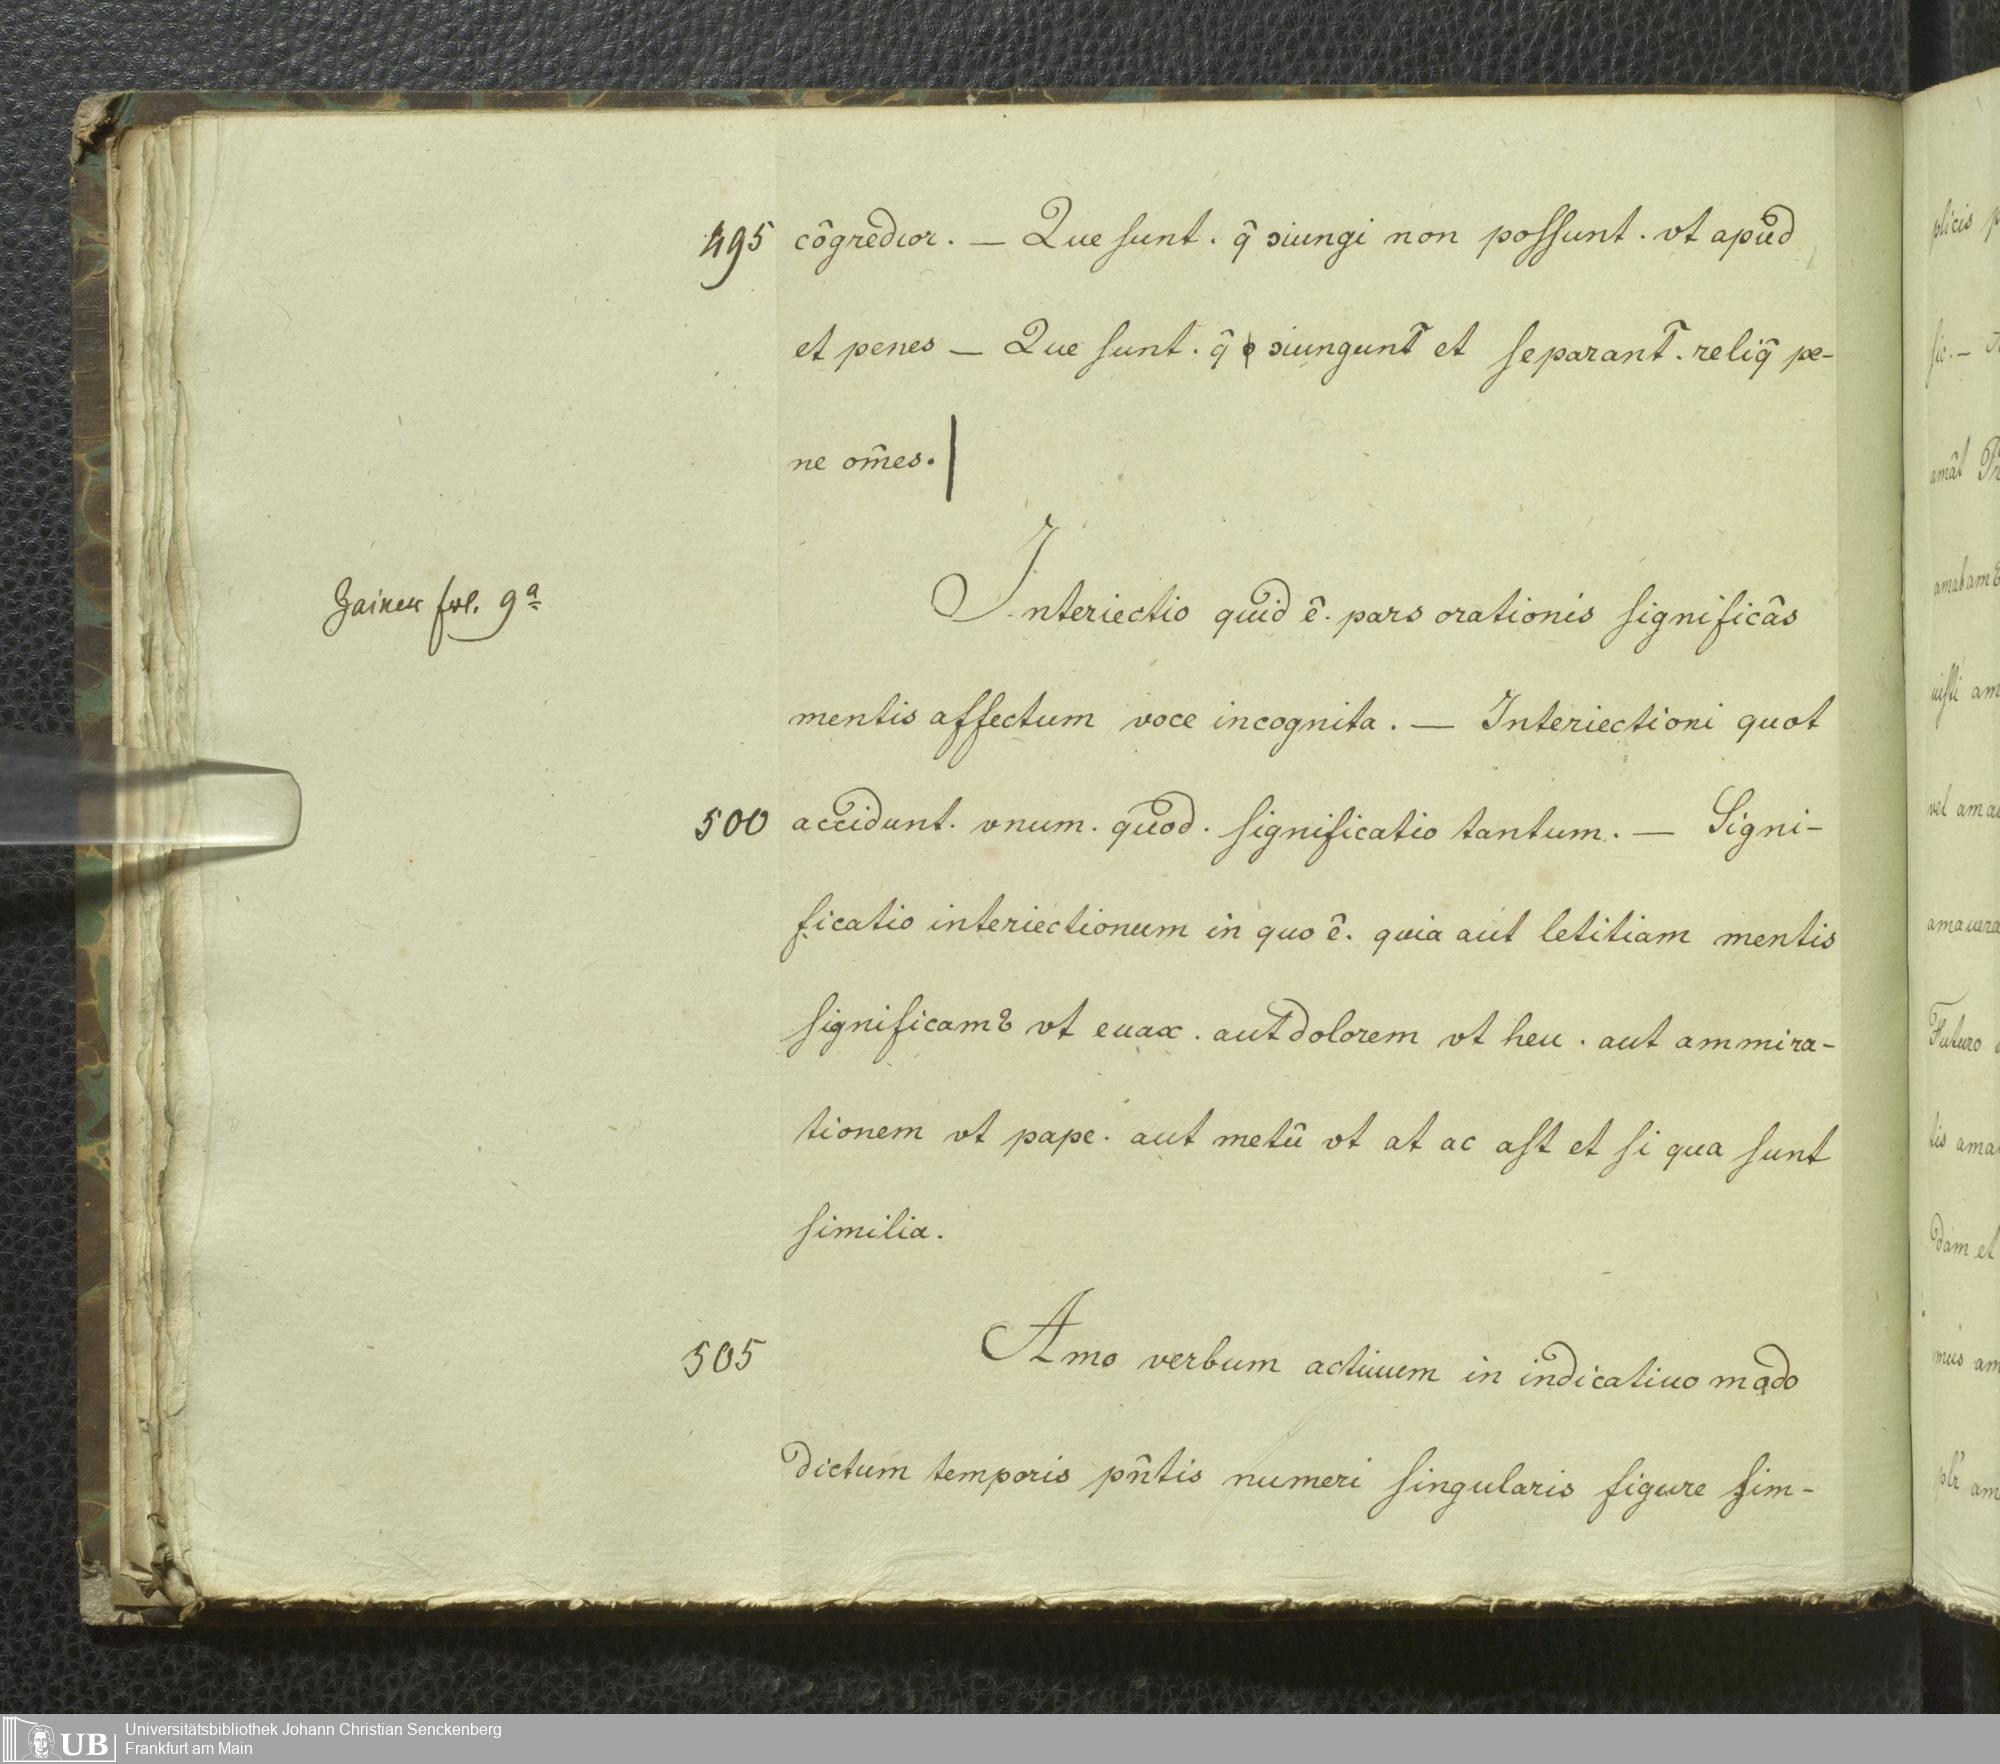 495 côgredior. — Que sunt. q̂ ɔiungi non poſſunt. vt apud
et penes — Que sunt. q̂ ɔiungunt̃ et separant̃. reliq̂ pe-
ne om̃es.
Zainer fol. 9ª
Interiectio quid ê. pars orationis significâs
mentis affectum voce incognita. — Interiectioni quot
500 accidunt. vnum. quod. significatio tantum. — Signi-
ficatio interiectionum in quo ê. quia aut letitiam mentis
significamꝰ vt euax. aut dolorem vt heu. aut ammira-
tionem vt pape. aut metû vt at ac aſt et si qua sunt
similia.
505 Amo verbum actiuum in indicatiuo modo
dictum temporis pñtis numeri singularis figure sim-
plicis
amât
amabamꝰ
uiſti am
vel ama
amauera
Futuro
tis ama
dam et
mus am
plr̃ am
UB Universitätsbibliothek Johann Christian Senckenberg
Frankfurt am Main